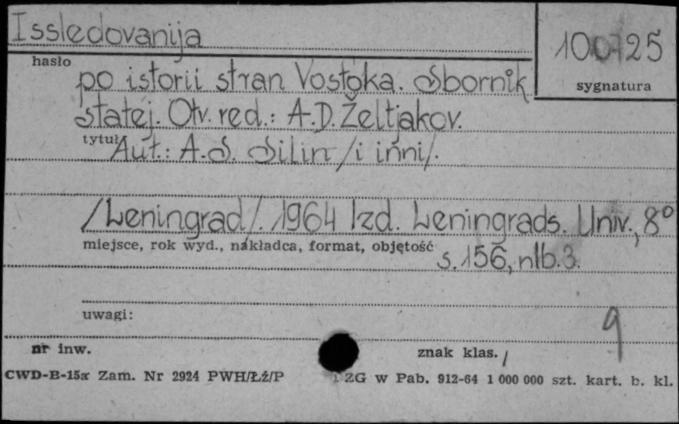 Issledovanija
100725
hasło
sygnatura
po istorii stran Vostoka. Sbornik
statej. Otv. red.: A.D. Želtjakov.
tytuł
Aut.: A.S. Silin /i inni/.
/Leningrad/. 1964 Izd. Leningrads. Univ., 8°
miejsce, rok wyd., nakładca, format, objętość
s. 156, nlb. 3.
uwagi:
9
nr inw.
znak klas.
CWD-B-15x Zam. Nr 2924 PWH/Łź/P
ZG w Pab. 912-64 1 000 000 szt. kart. b. kl.